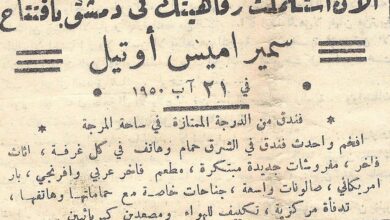 الآن استكملت رفاهيتك في دمشق بافتتاح
سمير اميس أوتيل
في ٢١ آب ١٩٥٠
فندق من الدرجة الممتازة في ساحة المرجة
افخم واحدث فندق في الشرق حمام وهاتف في كل غرفة ، اثاث
فاخر ، مفروشات جديدة مبتكرة ، مطعم فاخر عربي وافرنجي ، بار
اميركاني ، صالونات واسعة ، جناحات خاصة مع حماماتها وهاتفها ،
تدفأة مركزية ، تكييف للهواء ومصعدين كهربائيين